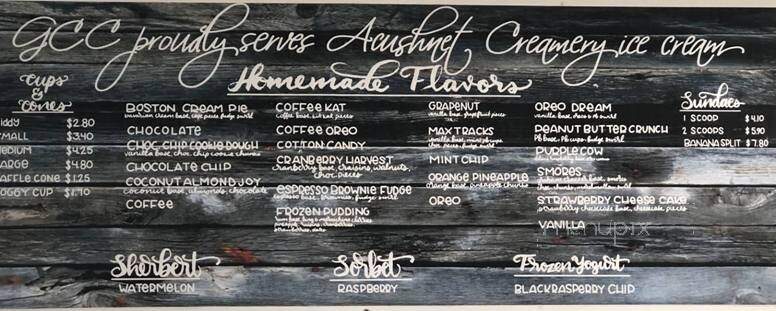 GCC proudly serves Acushnet Creamery ice cream
Homemade Flavors
Cups
&
Cones
iddy $2.80
MALL $3.40
EDIUM $4.25
ARGE $4.80
AFFLE CONE $1.25
OGGY CUP $1.70
BOSTON CREAM PIE
CHOCOLATE
CHOC. CHIP COOKIE DOUGH
vanilla base, choc. chip cookie chunks
CHOCOLATE CHIP
COCONUT ALMOND JOY
coconut base, almonds, chocolate
COFFEE
COFFEE KAT
coffee base, kit kat pieces
COFFEE OREO
COTTON CANDY
CRANBERRY HARVEST
cranberry base, craisins, walnuts,
choc. pieces
ESPRESSO BROWNIE FUDGE
espresso base, brownies, fudge swirl
FROZEN PUDDING
GRAPENUT
MAX TRACKS
MINT CHIP
ORANGE PINEAPPLE
orange base, pineapple chunks
OREO
OREO DREAM
PEANUT BUTTER CRUNCH
Pb base, Pb cups, fudge swirl
PURPLE COW
S'MORES
STRAWBERRY CHEESE CAKE
strawberry cheesecake base, cheesecake pieces
VANILLA
Sundaes
1 SCOOP $4.10
2 SCOOPS $5.90
BANANA SPLIT $7.80
Sherbert
WATERMELON
Sorbet
RASPBERRY
Frozen Yogurt
BLACKRASPBERRY CHIP
menupix